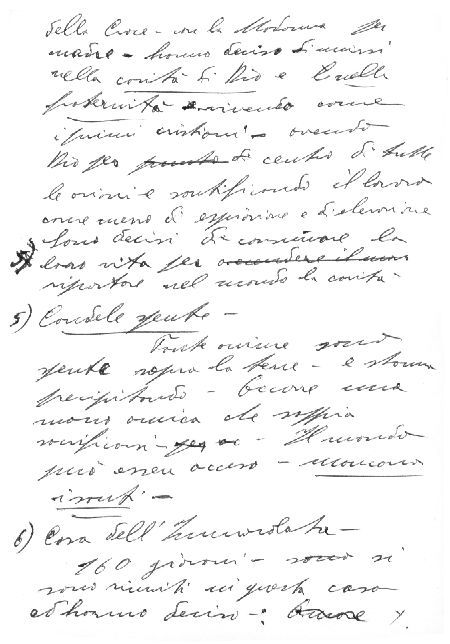 della Croce - con la Madonna per
madre - hanno deciso di unirsi
nella carità di Dio e nella
fraternità vivendo come
i primi cristiani - avendo
Dio per punto di centro di tutte
le azioni e santificando il lavoro
come mezzo di espiazione e di elevazione
Sono decisi di consumare la
loro vita per accendere il mon
riportare nel mondo la carità
5) Candele spente -
Tante anime sono
spente sopra la terra - e stanno
precipitando - Occorre una
mano amica che sappia
sacrificarsi - - Il mondo
può essere acceso - mancano
i santi -
6) Casa dell'Immacolata -
160 giovani - sono si
sono riuniti in questa casa
ed hanno deciso -: Occorre